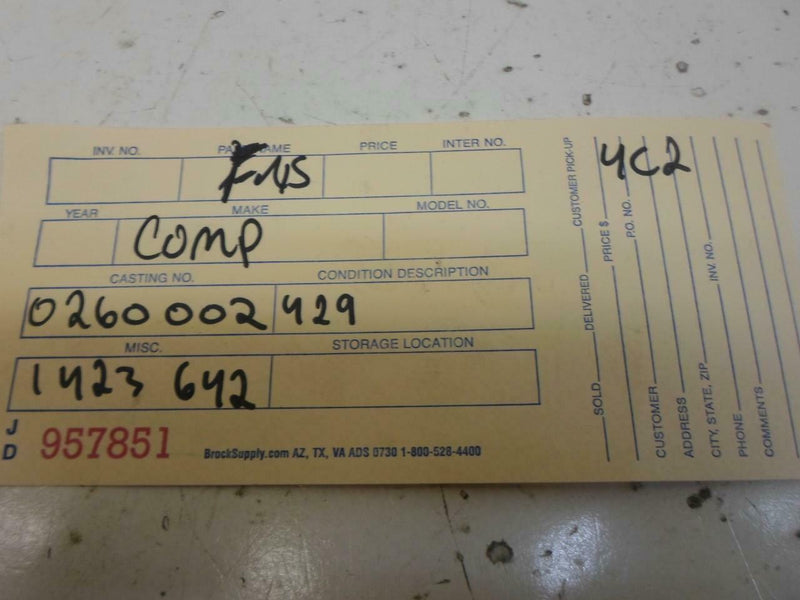 INV. NO. PART NAME PRICE INTER NO.
YEAR MAKE MODEL NO.
COMP
CASTING NO. CONDITION DESCRIPTION
0260 002 429
MISC. STORAGE LOCATION
1423 642
J D 957851 BrockSupply.com AZ, TX, VA ADS 0730 1-800-528-4400
4C2
SOLD DELIVERED CUSTOMER PICK-UP
PRICE $
P.O. NO.
CUSTOMER
ADDRESS
CITY, STATE, ZIP INV. NO.
PHONE
COMMENTS